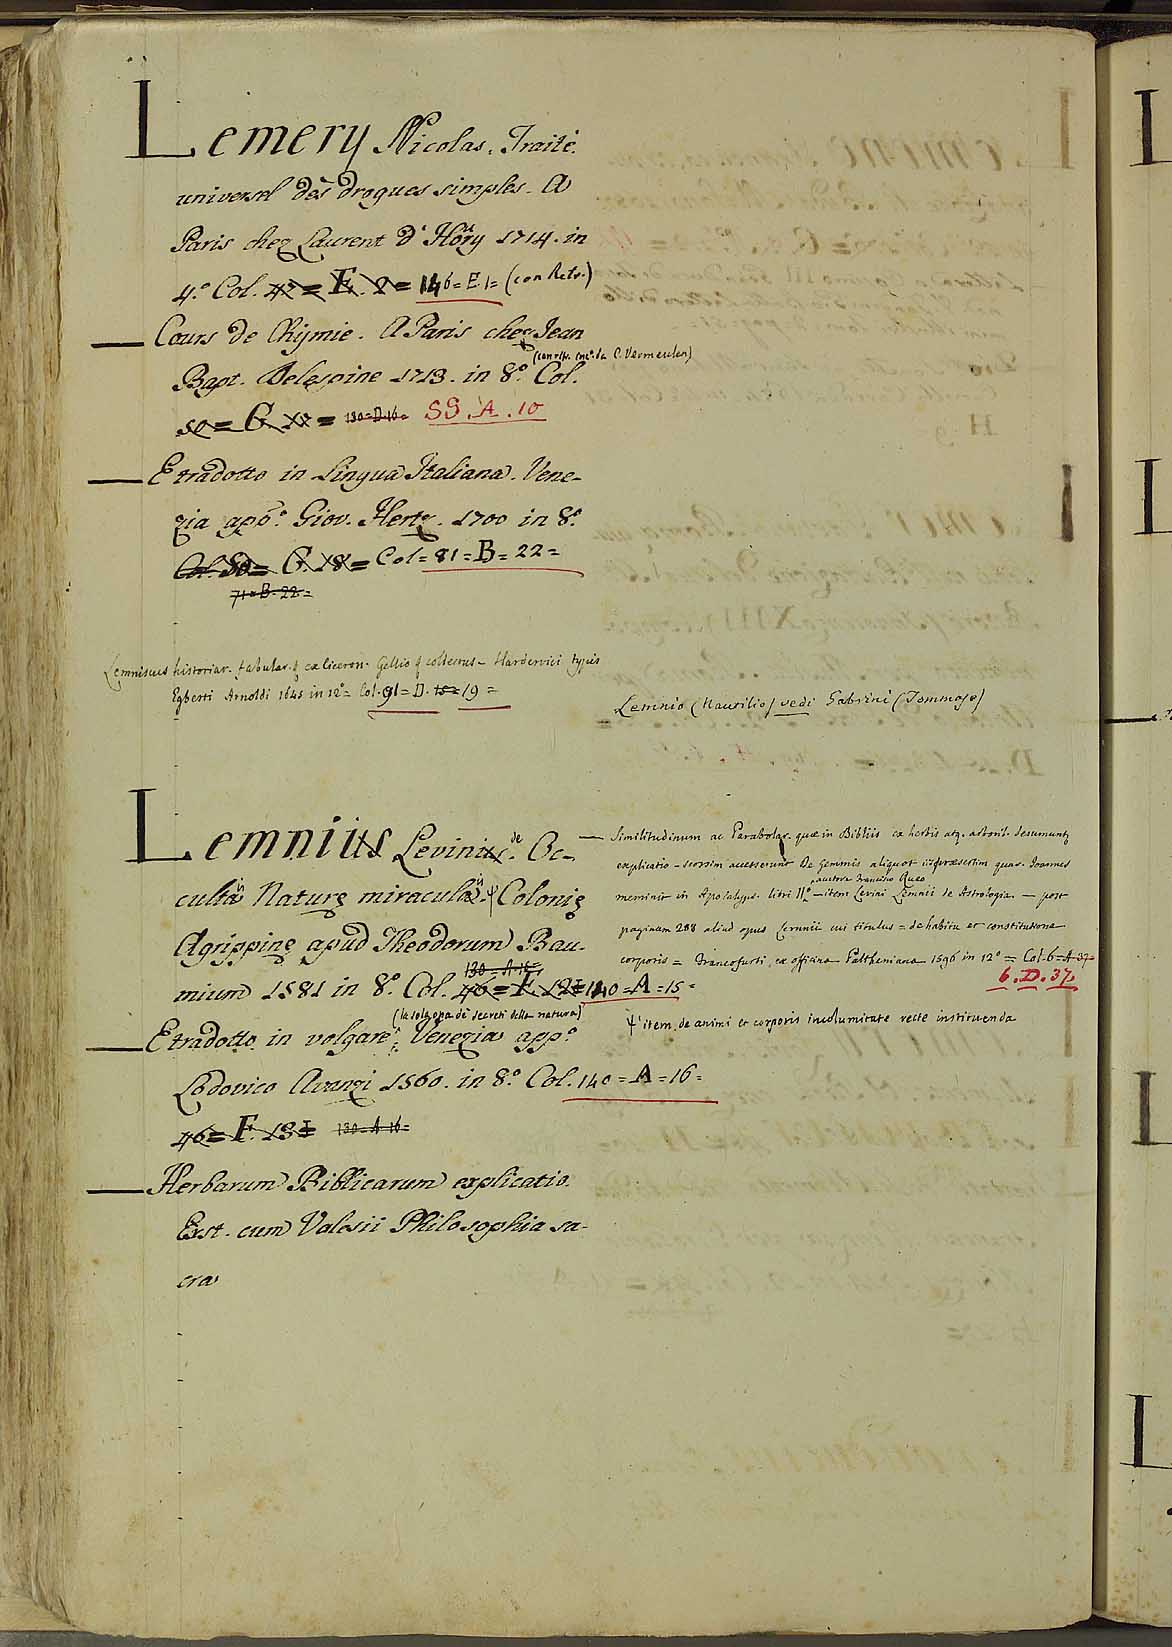 Lemery Nicolas. Traité
universel des drogues simples. A
Paris chez Laurent d'Hory 1714. in
4.º Col. 42 = F. 2 = 146 = E. 1 = (con Retr.)
Cours de Chijmie. A Paris chez Jean
Bapt. Delespine 1713. in 8.º Col.
50 = G = 130 = D. 16 = SS. A. 10
E tradotto in Lingua Italiana. Vene-
zia app.º Giov. Hertz. 1700 in 8.º
Col. 50 = G. 18 = Col = 81 = B = 22 =
71 = B. 22 =
Lemniscus historiar. fabular. q ex Ciceron. Gellio q collectus - Hardervici typis
Egberti Arnoldi 1645 in 12º = Col. 91 = D. 152 = 19 =
Lemnio (Maurilio) vedi Gabrini (Tommaso)
Lemnius Levinus. de Oc-
cultis Naturę miraculis. ψ Colonię
Agrippinę apud Theodorum Bau-
130 = A. 15 =
mium 1581 in 8.º Col. 46 = F. 12 = 140 = A = 15 =
E tradotto in volgare Venezia app.º
Lodovico Avanzi 1560. in 8.º Col. 140 = A = 16 =
46 = F. 13 = 130 = A. 16 =
Herbarum Biblicarum explicatio.
Exst. cum Valesii Philosophia sa-
cra
Similitudinum ac Parabolar. quæ in Bibliis ex herbis atq. arborib. desumuntq
explicatio - seorsim accesserunt De Gemmis aliquot iis præsertim quar. Joannes
auctore Francisco Rueo
meminit in Apocalyps. libri II. - item Levini Lemnii de Astrologia - post
paginam 288 aliud opus Lemnii cui titulus = de habitu et constitutione
corporis = Francofurti, ex officina Paltheniana 1596 in 12º = Col. 6 = A 37 =
6. D. 37.
ψ item de animi et corporis incolumitate recte instituenda